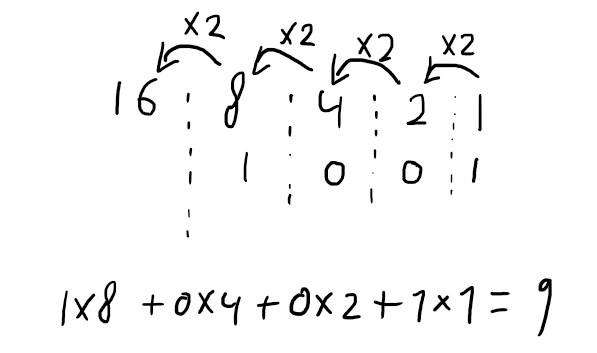 ×2 ×2 ×2 ×2
16 8 4 2 1
1 0 0 1
1×8 +0×4+0×2+1×1= 9